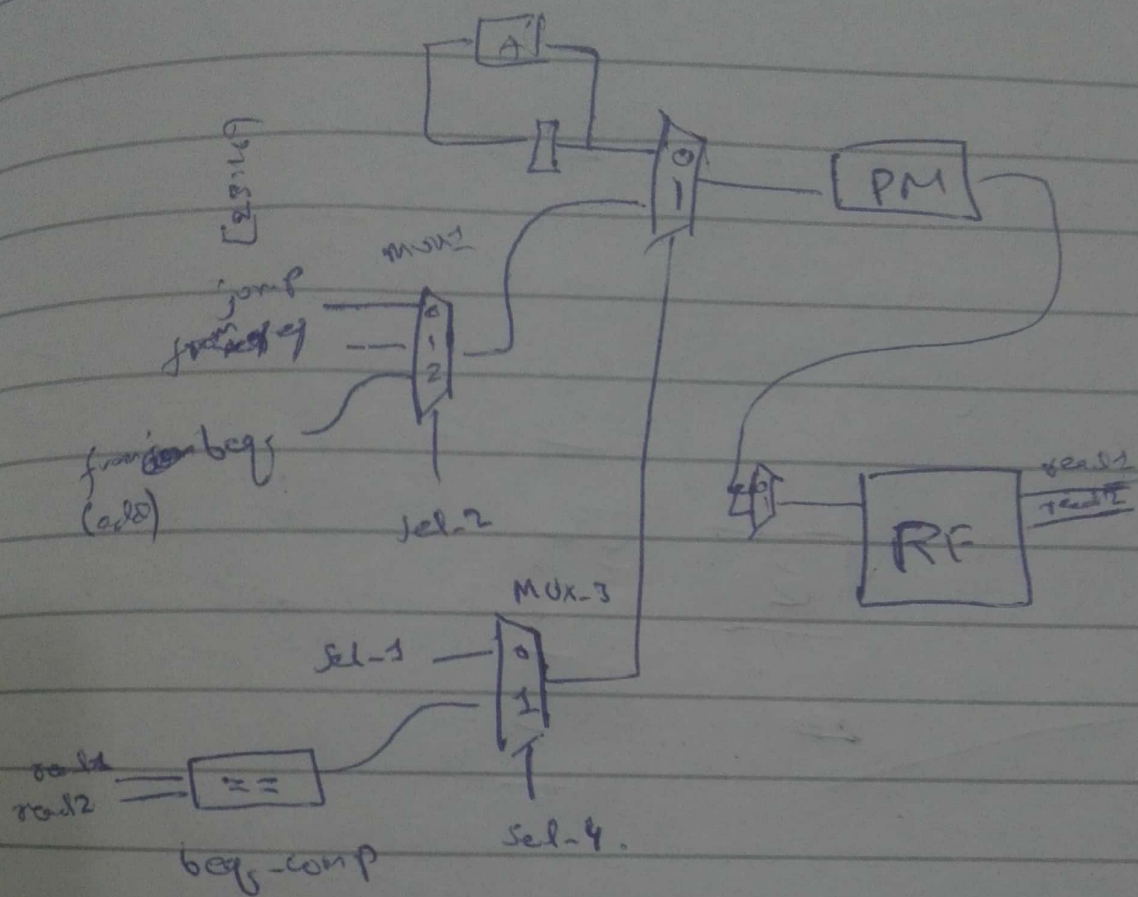 A
0
1
PM
MUX1
jomp
from
0
1
2
from beq
(add)
sel-2
0
1
RF
read1
read2
MUX-3
Sel-1
0
1
read1
read2
==
beq-comp
Sel-4.